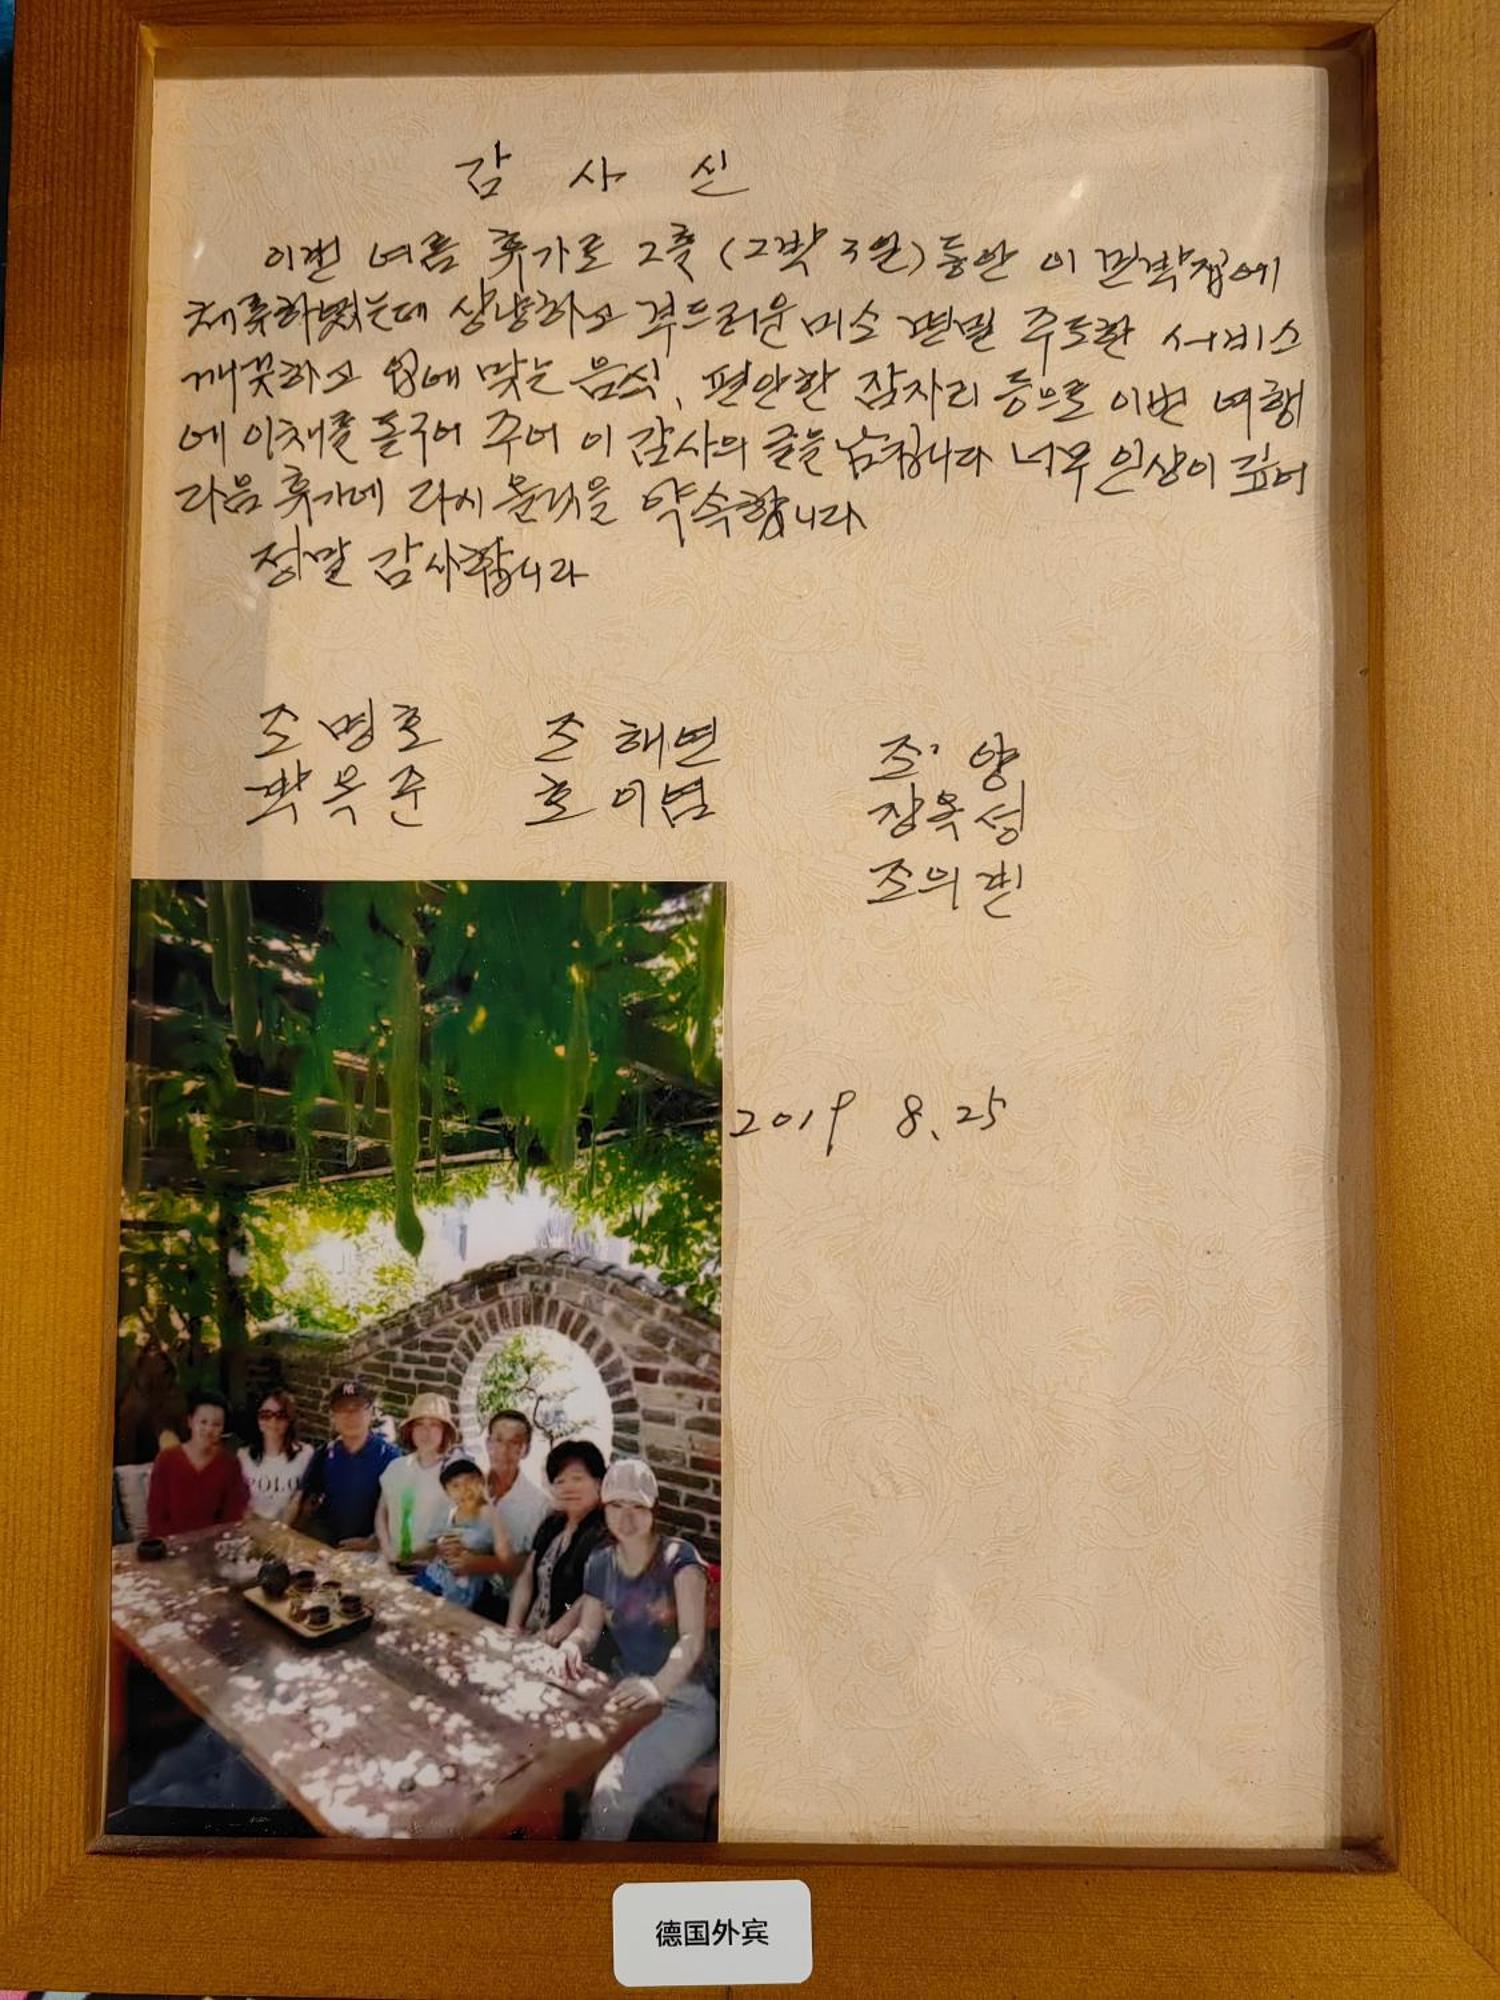 감 사 신
이번 여름 휴가로 2죽 (2박 3일) 동안 이 민박집에
체류하였는데 상냥하고 부드러운 미소 면밀 주도한 서비스
깨끗하고 입에 맞는 음식, 편안한 잠자리 등으로 이번 여행
에 이채를 돋구어 주어 이 감사의 글을 남깁니다 너무 인상이 깊어
다음 휴가에 다시 올것을 약속합니다
정말 감사합니다
조 명호 조 해연 조 양
박옥준 호이범 장옥성
조의린
2019 8.25
NY
POLO
德国外宾